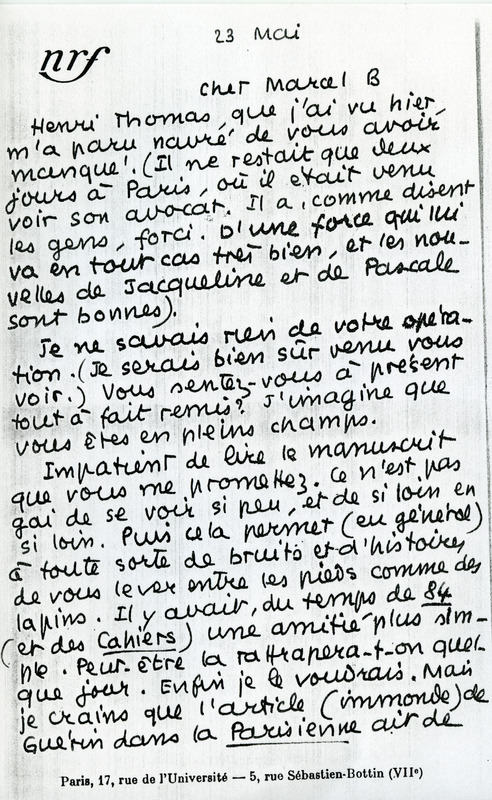 23 Mai
nrf
cher Marcel B
Henri Thomas, que j'ai vu hier,
m'a paru navré de vous avoir
manqué. (Il ne restait que deux
jours à Paris, où il était venu
voir son avocat. Il a, comme disent
les gens, forci. D'une force qui lui
va en tout cas très bien, et les nou-
velles de Jacqueline et de Pascale
sont bonnes).
Je ne savais rien de votre opéra-
tion. (Je serais bien sûr venu vous
voir.) Vous sentez-vous à présent
tout à fait remis? J'imagine que
vous êtes en pleins champs.
Impatient de lire le manuscrit
que vous me promettez. Ce n'est pas
gai de se voir si peu, et de si loin en
si loin. Puis cela permet (en général)
à toute sorte de bruits et d'histoires
de vous lever entre les pieds comme des
lapins. Il y avait, du temps de 84
(et des Cahiers) une amitié plus sim-
ple. Peut-être la rattrapera-t-on quel-
que jour. Enfin je le voudrais. Mais
je crains que l'article (immonde) de
Guérin dans la Parisienne ait de
Paris, 17, rue de l'Université — 5, rue Sébastien-Bottin (VIIe)